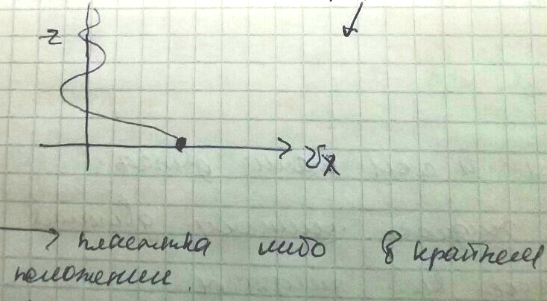 z
υx
→ пластинка либо в крайнем
положении